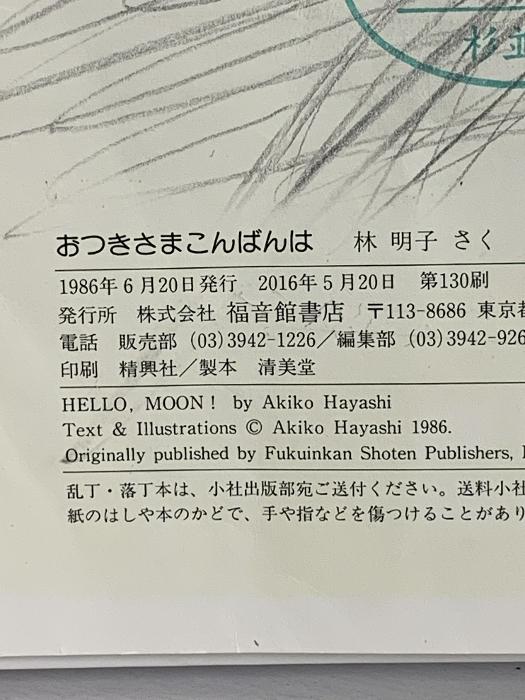 杉並
おつきさまこんばんは 林 明子 さく
1986年6月20日発行 2016年5月20日 第130刷
発行所 株式会社 福音館書店 〒113-8686 東京都
電話 販売部 (03)3942-1226/編集部 (03)3942-926
印刷 精興社/製本 清美堂
HELLO, MOON! by Akiko Hayashi
Text & Illustrations © Akiko Hayashi 1986.
Originally published by Fukuinkan Shoten Publishers,
乱丁・落丁本は、小社出版部宛ご送付ください。送料小社
紙のはしや本のかどで、手や指などを傷つけることがあり